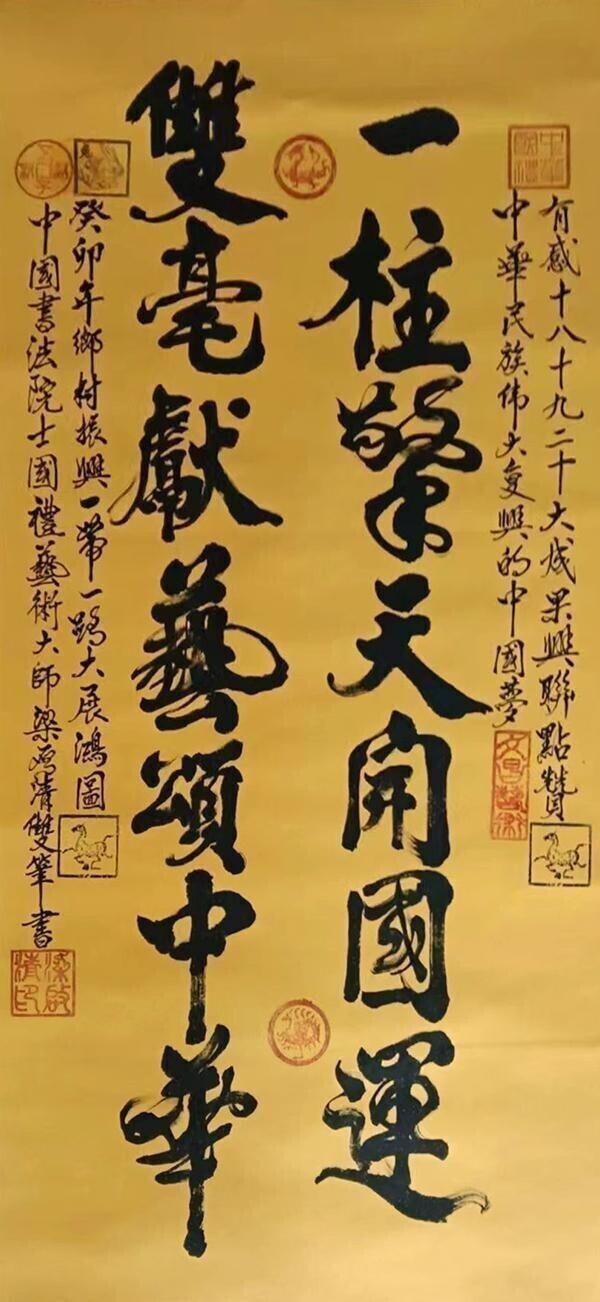 有感十八十九二十大成果興聯點赞
中華民族伟大复興的中國夢
一柱擎天開國運
雙毫獻藝頌中華
癸卯年鄉村振興一带一路大展鴻圖
中国書法院士國禮藝術大師梁啟清雙筆書
梁啟清印